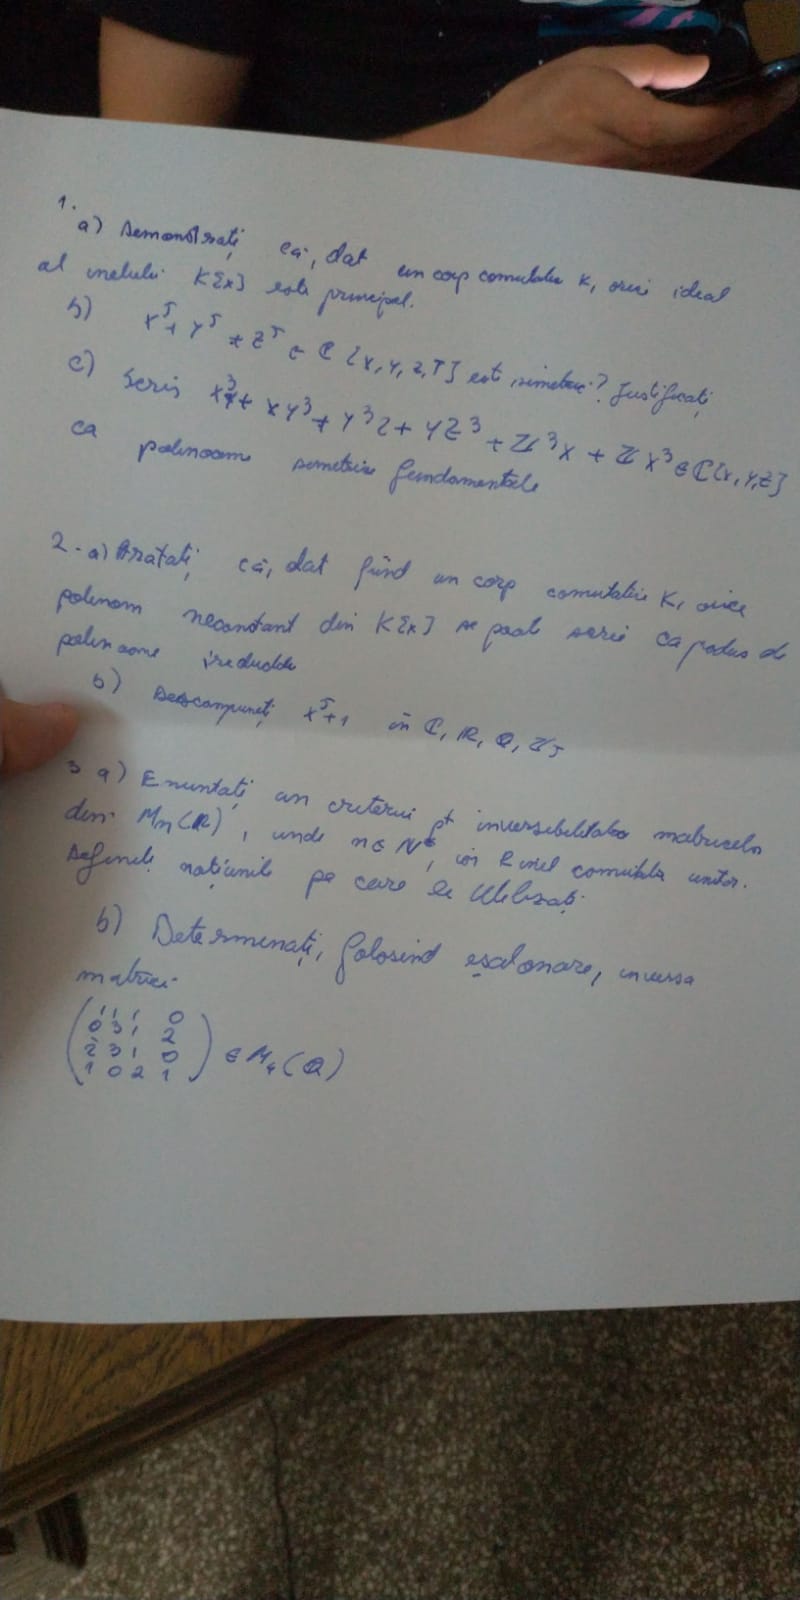 1.
a) Demonstrați că, dat un corp comutativ K, orice ideal
al inelului K[x] este principal.
b) X⁵+Y⁵+Z⁵ ∈ ℂ[X,Y,Z,T] este simetric? Justificați
c) Scris X³Y+XY³+Y³Z+YZ³+Z³X+ZX³∈ℂ[X,Y,Z]
ca polinoame simetrice fundamentale
2. a) Arătați că, dat fiind un corp comutativ K, orice
polinom neconstant din K[x] se poate scrie ca produs de
polinoame ireductibile
b) Descompuneți X⁵+1 în ℂ, ℝ, ℚ, ℤ₅
3 a) Enunțați un criteriu pt inversibilitatea matricelor
din Mₙ(R), unde n∈N*, iar R inel comutativ unitar.
Definiți noțiunile pe care le utilizați
b) Determinați, folosind eșalonare, inversa
matricei
1 1 1 0
0 3 1 2
2 3 1 0
1 0 2 1 ∈ M₄(ℚ)